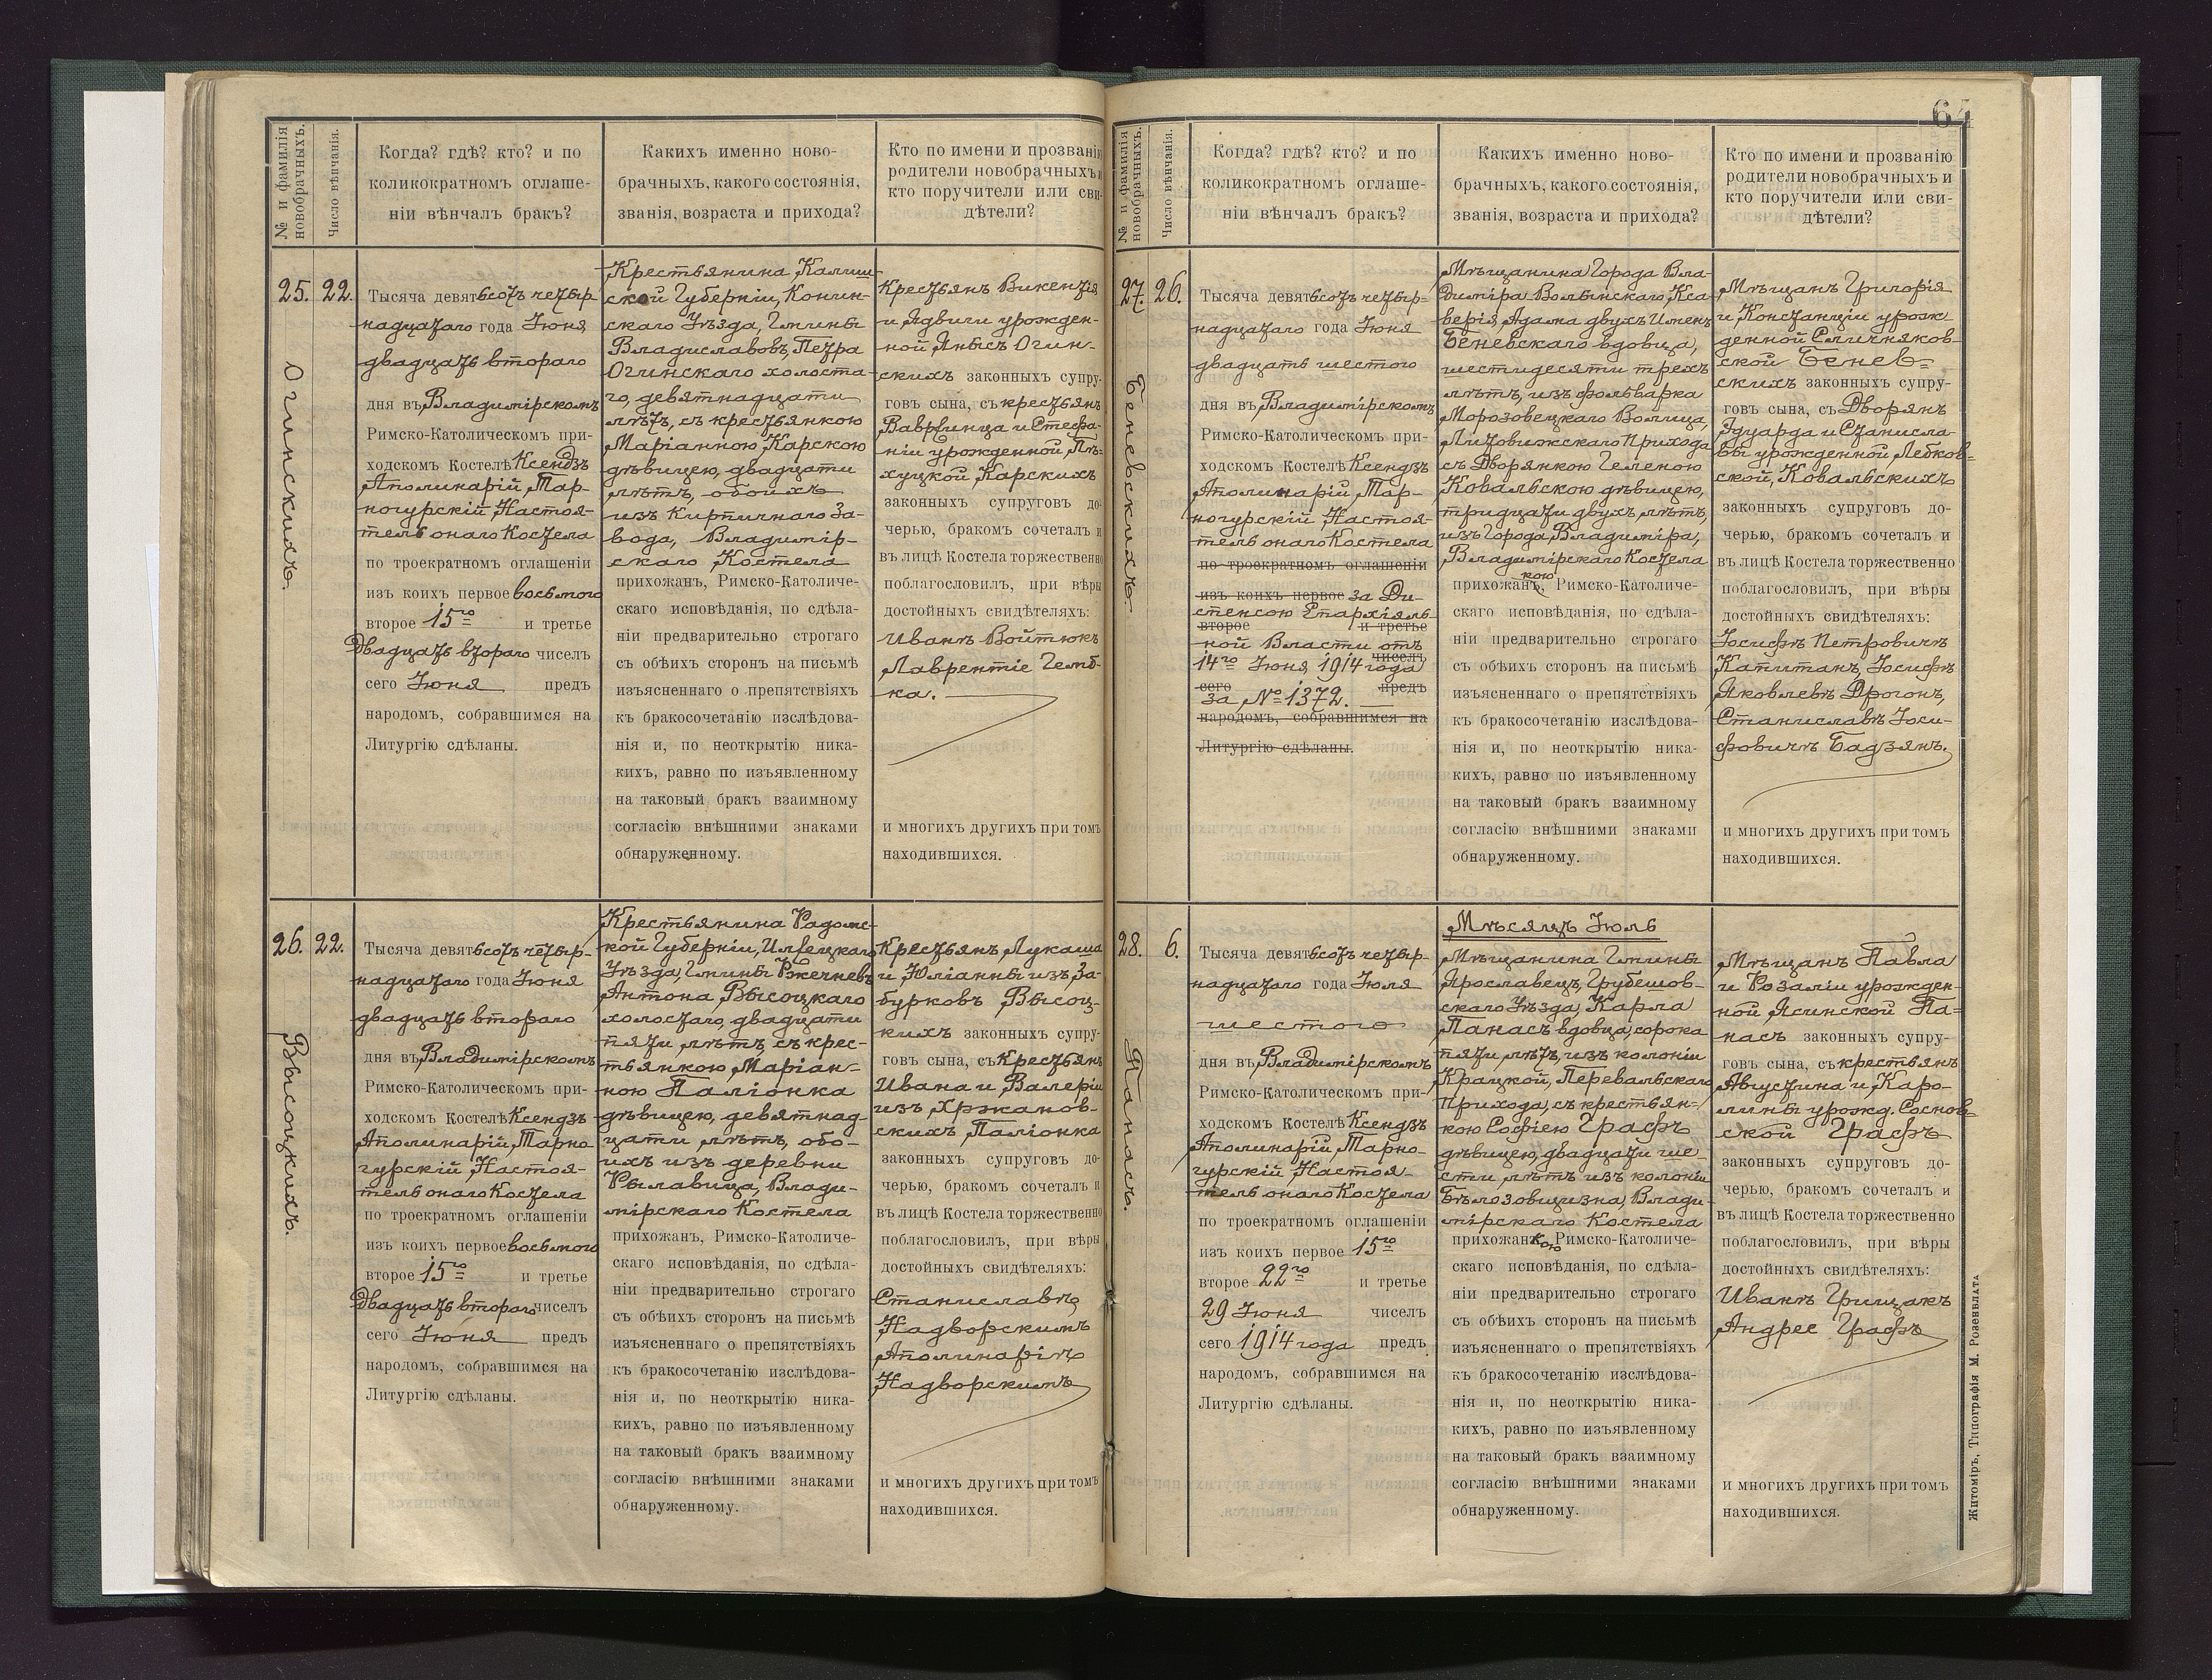 64
№ и фамилія новобрачныхъ.
Число вѣнчанія.
Когда? гдѣ? кто? и по
коликократномъ оглаше-
ніи вѣнчалъ бракъ?
Какихъ именно ново-
брачныхъ, какого состоянія,
званія, возраста и прихода?
Кто по имени и прозванію
родители новобрачныхъ и
кто поручители или сви-
дѣтели?
25.
Огинскихъ.
22.
Тысяча девятьсотъ четыр-
надцатаго года Іюня
двадцать втораго
дня въ Владимірскомъ
Римско-Католическомъ при-
ходскомъ Костелѣ Ксендзъ
Аполинарій Тар-
ногурскій Настоя-
тель онаго Костела
по троекратномъ оглашеніи
изъ коихъ первое восьмого
второе 15го и третье
Двадцать втораго чиселъ
сего Іюня предъ
народомъ, собравшимся на
Литургію сдѣланы.
Крестьянина Калиш-
ской Губерніи, Конин-
скаго Уѣзда, Гмины
Владиславовъ, Петра
Огинскаго холоста-
го, девятнадцати
лѣтъ, съ крестьянкою
Маріанною Карскою
дѣвицею, двадцати
лѣтъ, обоихъ
изъ Кирпичнаго За-
вода, Владимір-
скаго Костела
прихожанъ, Римско-Католиче-
скаго исповѣданія, по сдѣла-
ніи предварительно строгаго
съ обѣихъ сторонъ на письмѣ
изъясненнаго о препятствіяхъ
къ бракосочетанію изслѣдова-
нія и, по неоткрытію ника-
кихъ, равно по изъявленному
на таковый бракъ взаимному
согласію внѣшними знаками
обнаруженному.
Крестьянъ Викентія
и Ядвиги урожден-
ной Янысъ Огин-
скихъ законныхъ супру-
говъ сына, съ крестьянъ
Варѳинца и Стефа-
ніи урожденной Пѣ-
хуцкой, Карскихъ
законныхъ супруговъ до-
черью, бракомъ сочеталъ и
въ лицѣ Костела торжественно
поблагословилъ, при вѣры
достойныхъ свидѣтеляхъ:
Иванъ Войтюкъ
Лаврентіе Гемб-
ка.
и многихъ другихъ при томъ
находившихся.
26.
Высоцкихъ.
22.
Тысяча девятьсотъ четыр-
надцатаго года Іюня
двадцать втораго
дня въ Владимірскомъ
Римско-Католическомъ при-
ходскомъ Костелѣ Ксендзъ
Аполинарій Тарно-
гурскій Настоя-
тель онаго Костела
по троекратномъ оглашеніи
изъ коихъ первое восьмого
второе 15го и третье
Двадцать втораго чиселъ
сего Іюня предъ
народомъ, собравшимся на
Литургію сдѣланы.
Крестьянина Радомс-
кой Губерніи, Илжецкаго
Уѣзда, Гмины Ржечневъ
Антона Высоцкаго
холостаго, двадцати
пяти лѣтъ, съ крес-
тьянкою Маріан-
ною Паліонка
дѣвицею, девятнад-
цати лѣтъ, обо-
ихъ изъ деревни
Рылавица, Влади-
мірскаго Костела
прихожанъ, Римско-Католиче-
скаго исповѣданія, по сдѣла-
ніи предварительно строгаго
съ обѣихъ сторонъ на письмѣ
изъясненнаго о препятствіяхъ
къ бракосочетанію изслѣдова-
нія и, по неоткрытію ника-
кихъ, равно по изъявленному
на таковый бракъ взаимному
согласію внѣшними знаками
обнаруженному.
Крестьянъ Лукаша
и Юліанны изъ За-
бурковъ Высоц-
кихъ законныхъ супру-
говъ сына, съ Крестьянъ
Ивана и Валеріи
изъ Хржанов-
скихъ Паліонка
законныхъ супруговъ до-
черью, бракомъ сочеталъ и
въ лицѣ Костела торжественно
поблагословилъ, при вѣры
достойныхъ свидѣтеляхъ:
Станиславъ
Надворскимъ
Аполинаріъ
Надворскимъ
и многихъ другихъ при томъ
находившихся.
№ и фамилія новобрачныхъ.
Число вѣнчанія.
Когда? гдѣ? кто? и по
коликократномъ оглаше-
ніи вѣнчалъ бракъ?
Какихъ именно ново-
брачныхъ, какого состоянія,
званія, возраста и прихода?
Кто по имени и прозванію
родители новобрачныхъ и
кто поручители или сви-
дѣтели?
27.
Беневскихъ.
26.
Тысяча девятьсотъ четыр-
надцатаго года Іюня
двадцать шестого
дня въ Владимірскомъ
Римско-Католическомъ при-
ходскомъ Костелѣ Ксендзъ
Аполинарій Тар-
ногурскій Настоя-
тель онаго Костела
по троекратномъ оглашеніи
изъ коихъ первое за Ди-
спенсою Епархіяль-
второе и третье
ной Власти отъ
чиселъ
14го Іюня 1914 года
сего предъ
за № 1372.
народомъ, собравшимся на
Литургію сдѣланы.
Мѣщанина Города Вла-
диміра Волынскаго, Кса-
верія, Адама двухъ Именъ
Беневскаго вдовца,
шестидесяти трехъ
лѣтъ, изъ фольварка
Морозовецкаго Волица,
Литовижскаго Прихода
съ Дворянкою Геленою
Ковальскою дѣвицею,
тридцати двухъ лѣтъ,
изъ Города Владиміра,
Владимірскаго Костела
кою
прихожанъ, Римско-Католиче-
скаго исповѣданія, по сдѣла-
ніи предварительно строгаго
съ обѣихъ сторонъ на письмѣ
изъясненнаго о препятствіяхъ
къ бракосочетанію изслѣдова-
нія и, по неоткрытію ника-
кихъ, равно по изъявленному
на таковый бракъ взаимному
согласію внѣшними знаками
обнаруженному.
Мѣщанъ Григорія
и Констанціи урож-
денной Сличняков-
ской Бенев-
скихъ законныхъ супру-
говъ сына, съ Дворянъ
Эдуарда и Станисла-
вы урожденной Лебков-
ской, Ковальскихъ
законныхъ супруговъ до-
черью, бракомъ сочеталъ и
въ лицѣ Костела торжественно
поблагословилъ, при вѣры
достойныхъ свидѣтеляхъ:
Іосифъ Петровичъ
Капитанъ, Іосифъ
Яковлевъ Дрогонъ,
Станиславъ Іоси-
фовичъ Бадзянъ.
и многихъ другихъ при томъ
находившихся.
28.
Панасъ.
6.
Тысяча девятьсотъ четыр-
надцатаго года Іюля
шестого
дня въ Владимірскомъ
Римско-Католическомъ при-
ходскомъ Костелѣ Ксендзъ
Аполинарій Тарно-
гурскій Настоя-
тель онаго Костела
по троекратномъ оглашеніи
изъ коихъ первое 15го
второе 22го и третье
29 Іюня чиселъ
сего 1914 года предъ
народомъ, собравшимся на
Литургію сдѣланы.
Мѣсяцъ Іюль
Мѣщанина Гмины
Ярославецъ, Грубешов-
скаго Уѣзда, Карла
Панасъ вдовца, сорока
пяти лѣтъ, изъ колоніи
Крацкой, Перевальскаго
Прихода, съ крестьян-
кою Софіею Графъ
дѣвицею, двадцати ше-
сти лѣтъ изъ колоніи
Бѣлозовщизна, Влади-
мірскаго Костела
прихожанкою, Римско-Католиче-
скаго исповѣданія, по сдѣла-
ніи предварительно строгаго
съ обѣихъ сторонъ на письмѣ
изъясненнаго о препятствіяхъ
къ бракосочетанію изслѣдова-
нія и, по неоткрытію ника-
кихъ, равно по изъявленному
на таковый бракъ взаимному
согласію внѣшними знаками
обнаруженному.
Мѣщанъ Павла
и Розаліи урожден-
ной Ясинской Па-
насъ законныхъ супру-
говъ сына, съ крестьянъ
Августина и Каро-
лины урожд. Соснов-
ской Графъ
законныхъ супруговъ до-
черью, бракомъ сочеталъ и
въ лицѣ Костела торжественно
поблагословилъ, при вѣры
достойныхъ свидѣтеляхъ:
Иванъ Грицакъ
Андрес Графъ
и многихъ другихъ при томъ
находившихся.
Житоміръ, Типографія М. Розенблата